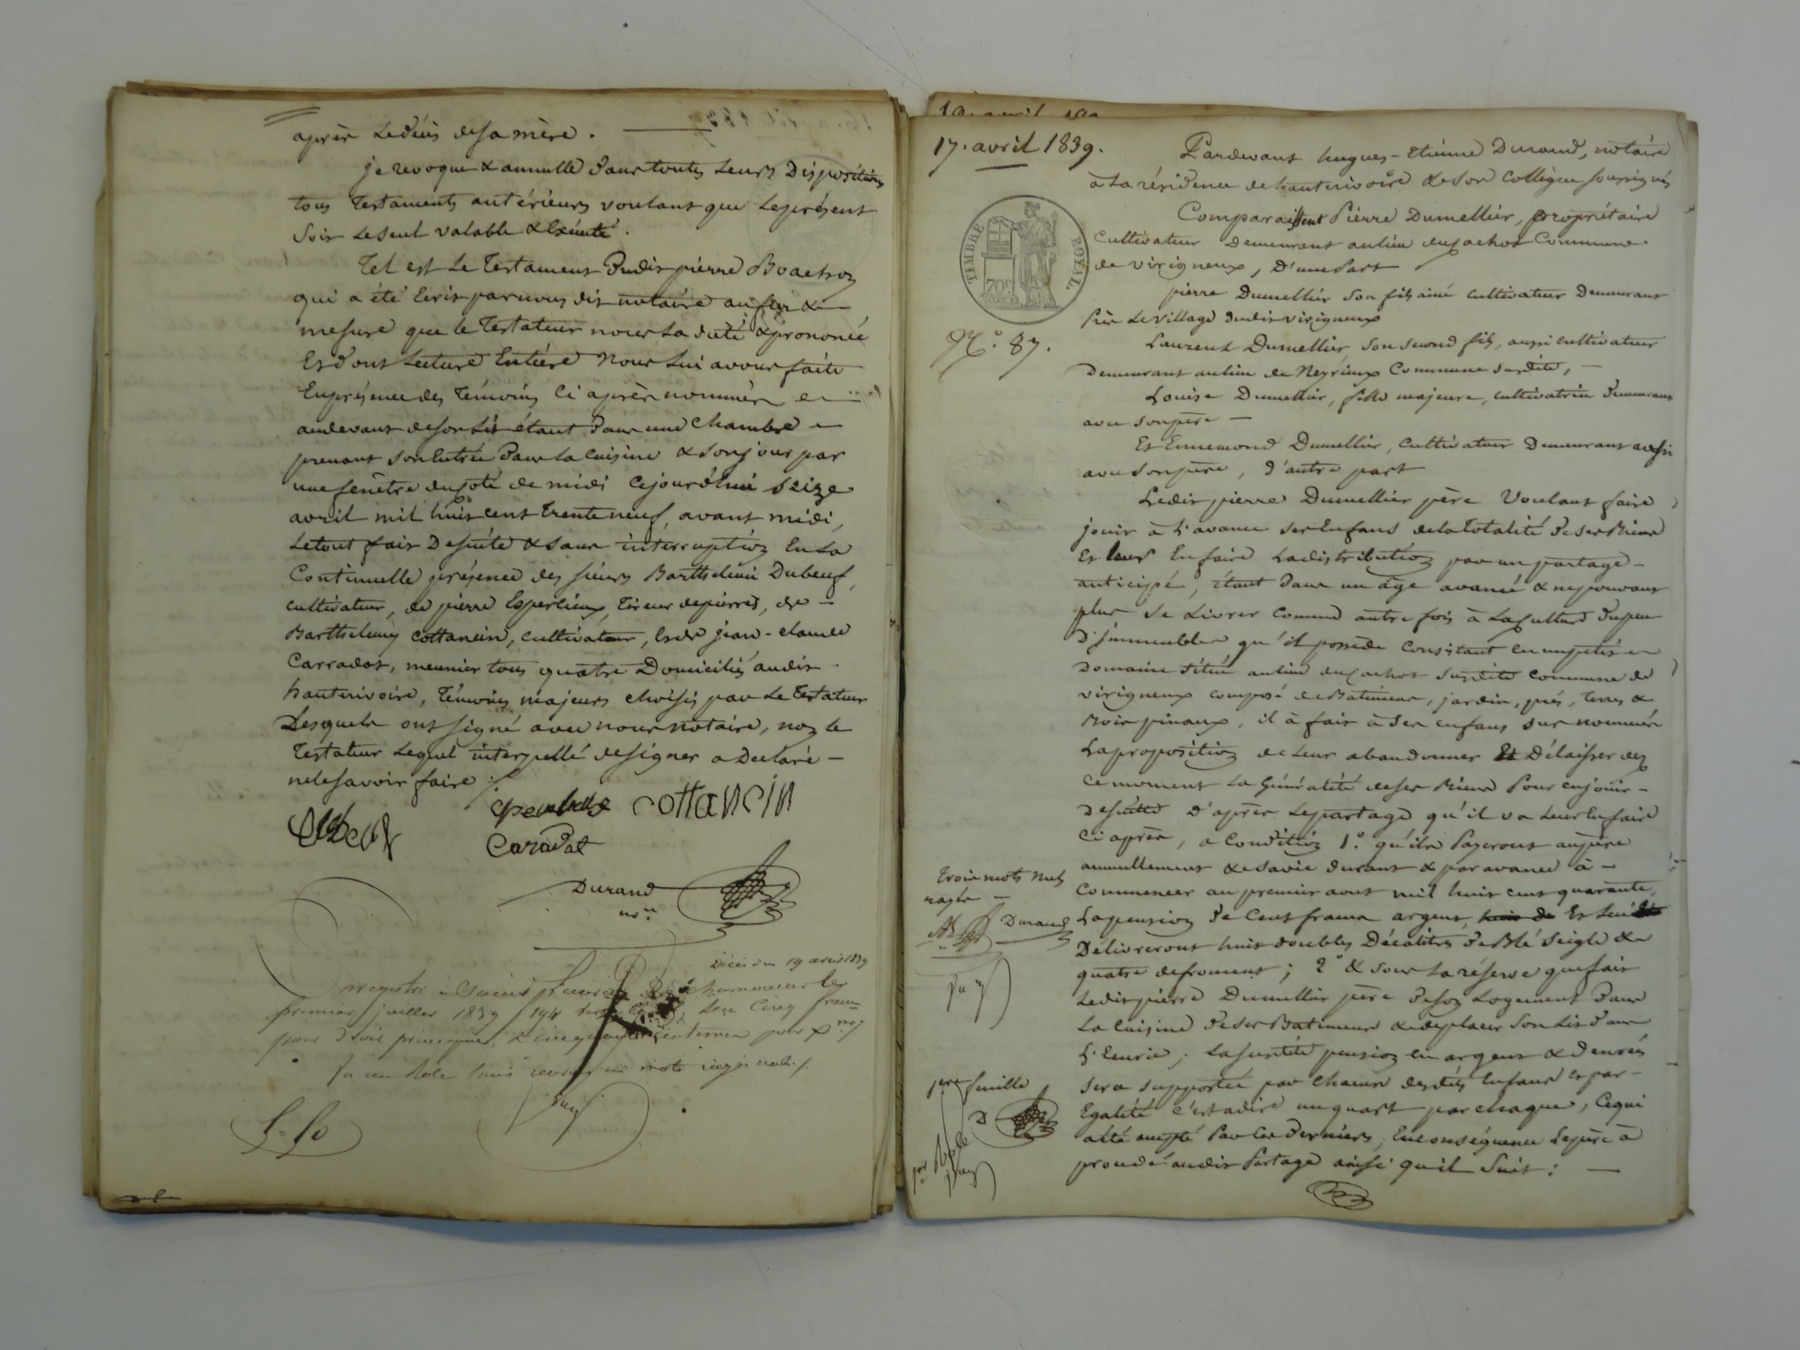 après le décès de sa mère.
je revoque & annulle dans toutes leurs Dispositions
tous Testaments antérieurs voulant que le présent
soit le seul valable & Exécuté.
Tel est le Testament Dudit pierre
qui a été Ecrit par nous dit notaire au fur &
mesure que le Testateur nous l'a dicté & prononcé
Et dont lecture Entière nous lui avons faite
En présence des Témoins Ci après nommés
audevant de son Lit étant dans une chambre
prenant son Entrée Dans la Cuisine & son jour par
une fenêtre du coté de midi Cejourd'hui seize
avril mil huit cent Trente neuf, avant midi,
Le tout fait De suite & sans interruption En la
Continuelle présence des sieurs Barthelemi Dubeuf,
cultivateur, de pierre Esperlieux, Tireur de pierres, de
Barthelemy Cottancin, cultivateur, & de jean-claude
Carradot, meunier tous quatre Domiciliés audit
hauterivoire, Témoins majeurs choisis par le Testateur
Lesquels ont signé avec nous notaire, non le
Testateur Lequel interpellé de signer a Déclaré
ne le savoir faire ./.
cottancin
Caradot
Durand
nre
Décès du 19 avril 1839
premier juillet 1839
17. avril 1839.
TIMBRE ROYAL.
70c
No. 87.
Pardevant hugues-Etienne Durand, notaire
à la résidence de hauterivoire & son Collègue soussignés
Comparaissent Pierre Dumellier, propriétaire
cultivateur Demeurant au lieu du cachot Commune
de virigneux, D'une part
pierre Dumellier son fils ainé cultivateur Demeurant
sur Le village dudit virigneux
Laurent Dumellier, son second fils, aussi cultivateur
Demeurant au lieu de Neyrieux Commune susdite,
Louise Dumellier, fille majeure, cultivatrice Demeurant
avec son père
Et Ennemond Dumellier, Cultivateur Demeurant aussi
avec son père, d'autre part
Ledit pierre Dumellier père Voulant faire
jouir à l'avance ses Enfans de la Totalité de ses Biens
Et leur En faire La distribution par un partage
anticipé, étant dans un âge avancé & ne pouvant
plus se Livrer comme autre fois à La culture du peu
D'immeubles qu'il possède Consistant en un petit
Domaine situé au lieu du cachot susdite commune de
virigneux composé de Batimens, jardin, prés, Terres &
Bois pinaux, il a fait à ses enfans sus nommés
La proposition de leur abandonner Et Délaisser dès
ce moment La Généralité de ses Biens Pour en jouir
de suite D'après Le partage qu'il va leur En faire
Ci après, à Condition 1.° qu'ils Payeront au père
annuellement & sa vie durant & par avance à
Commencer au premier aout mil huit cent quarante,
La pension de Cent francs argent Et lui
Délivreront huit doubles Décalitres de Blé seigle &
quatre de froment; 2° & sous la réserve que fait
Ledit pierre Dumellier père de son Logement Dans
La cuisine de ses Batimens & de placer son Lit dans
L'Ecurie; La susdite pension en argent & denrées
sera supportée par chacun desdits Enfans et par
Egalité c'est à dire un quart par chaque, Ce qui
a été accepté Par Ces Derniers; En conséquence Le père a
procédé audit Partage ainsi qu'il suit:
Trois mots nuls
rayés
Durand
1ere feuille
D